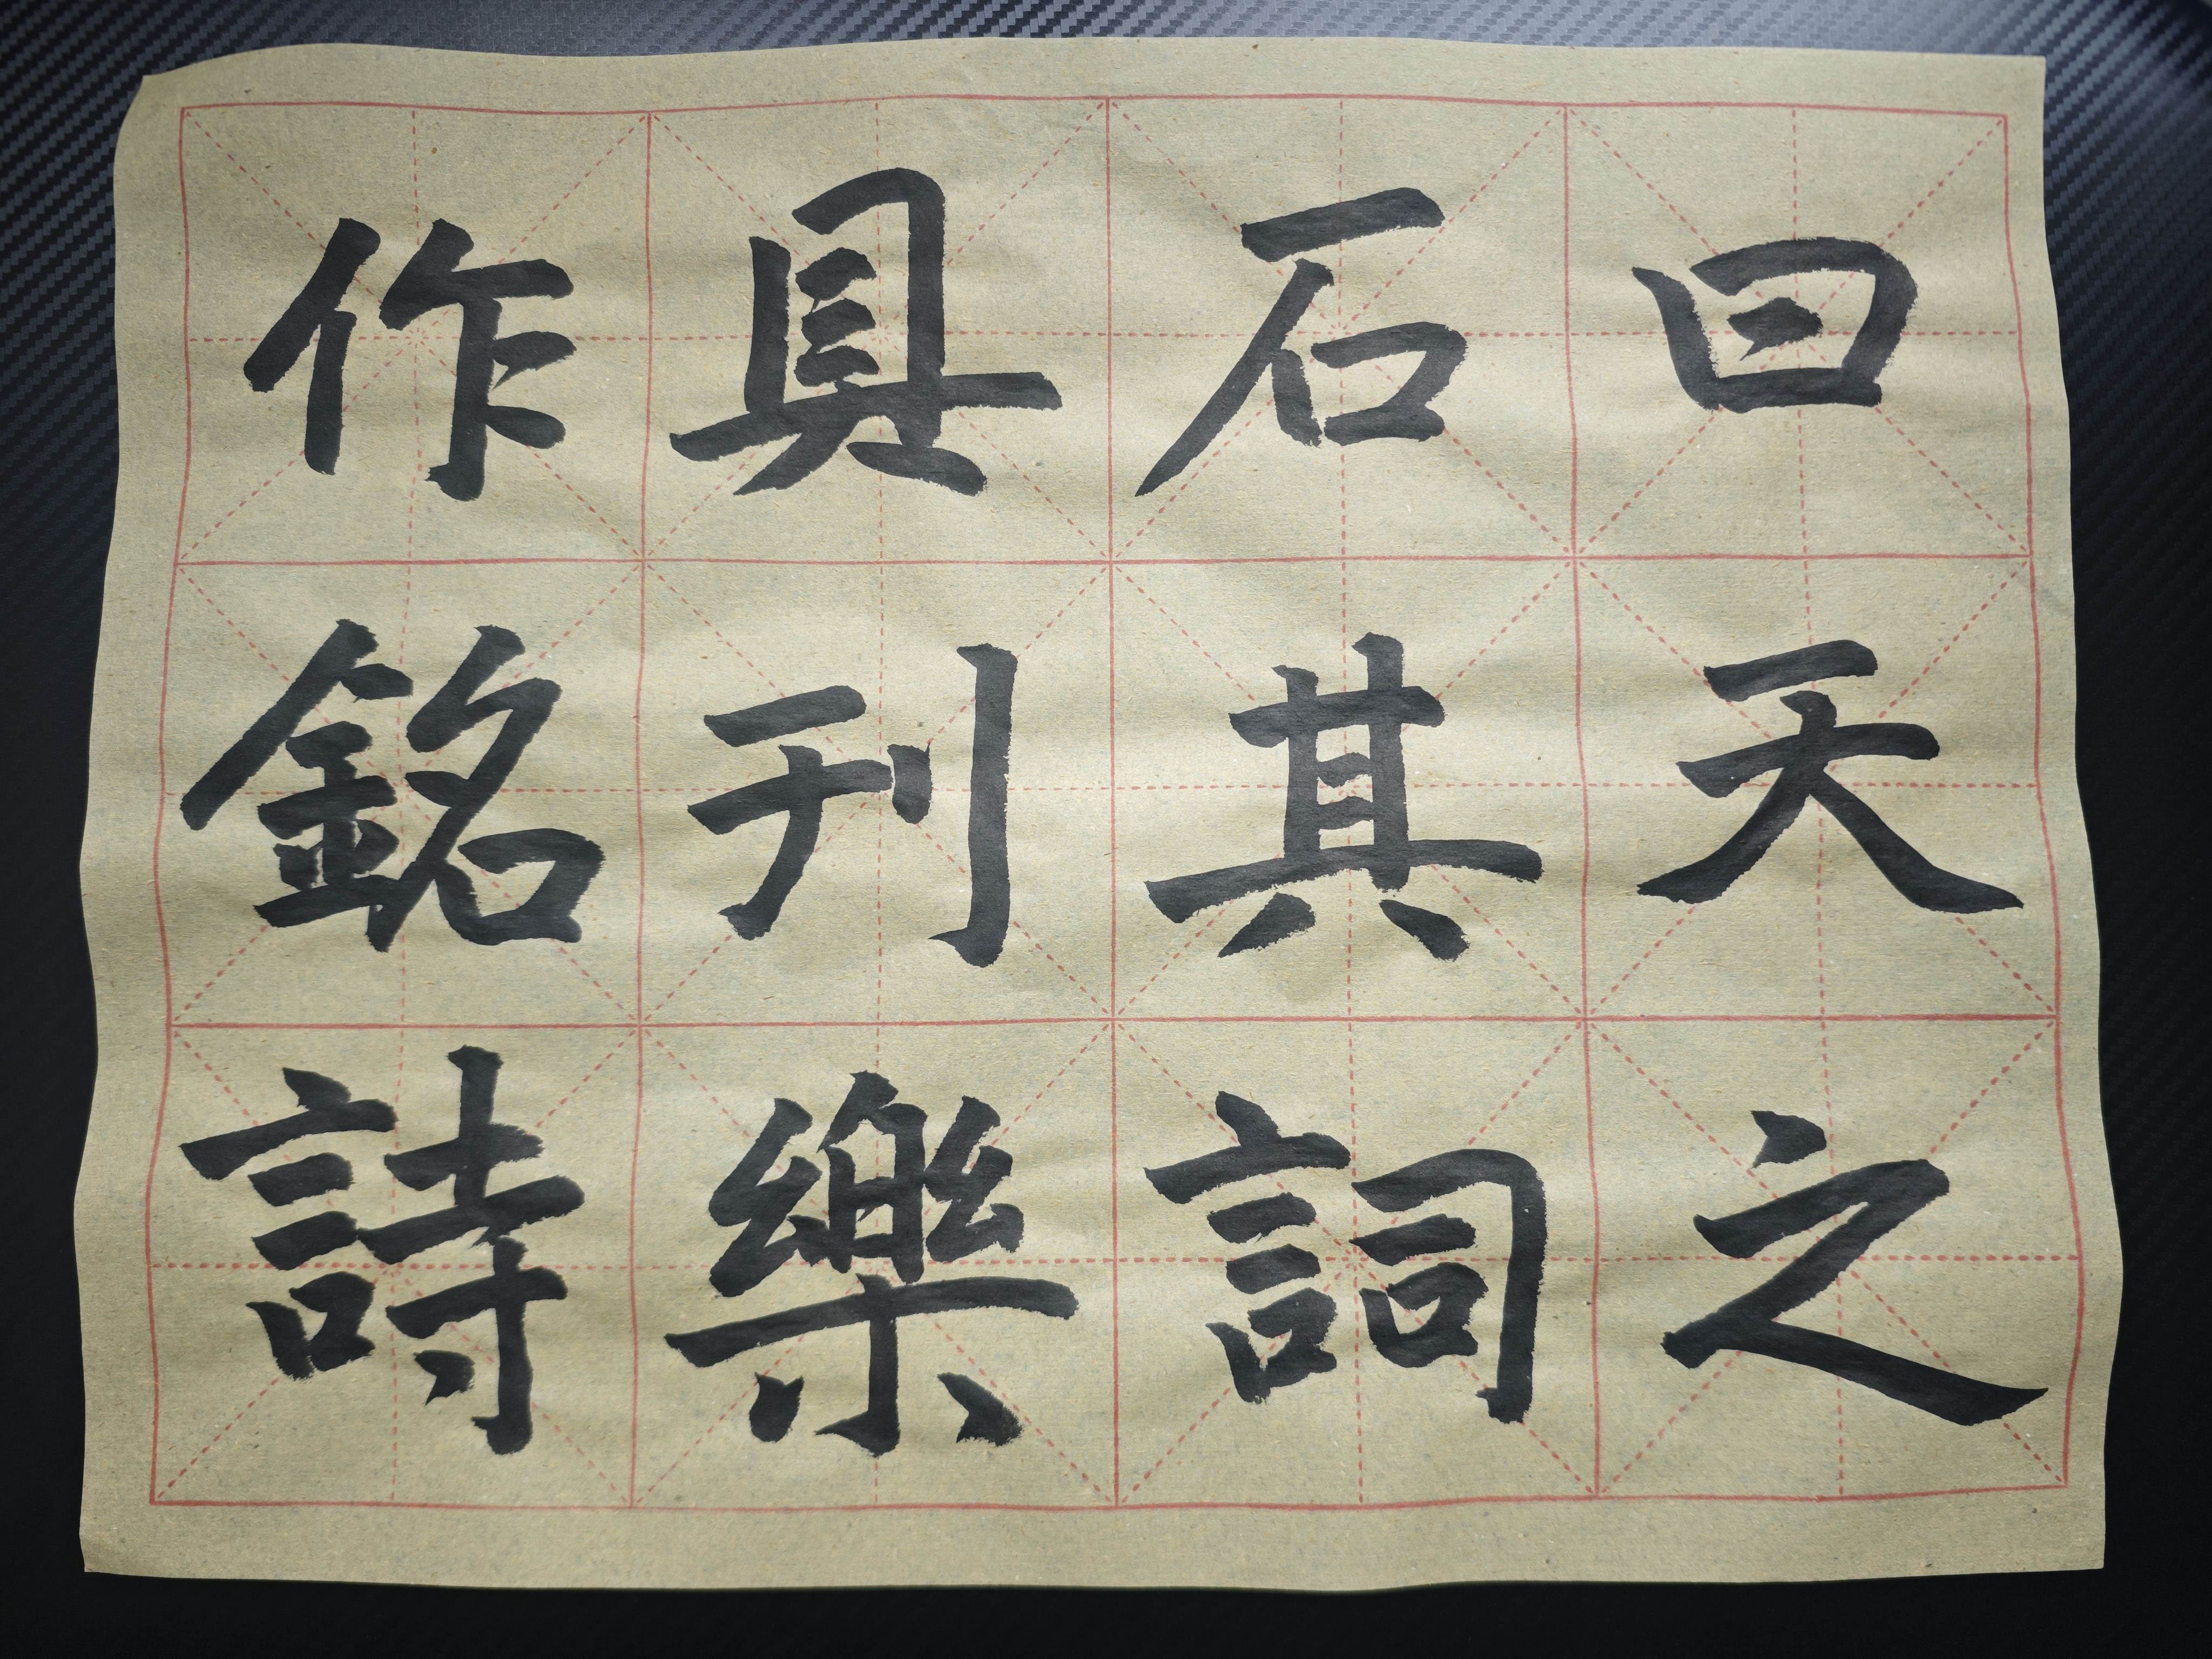 作銘詩
具刊樂
石其詞
曰天之